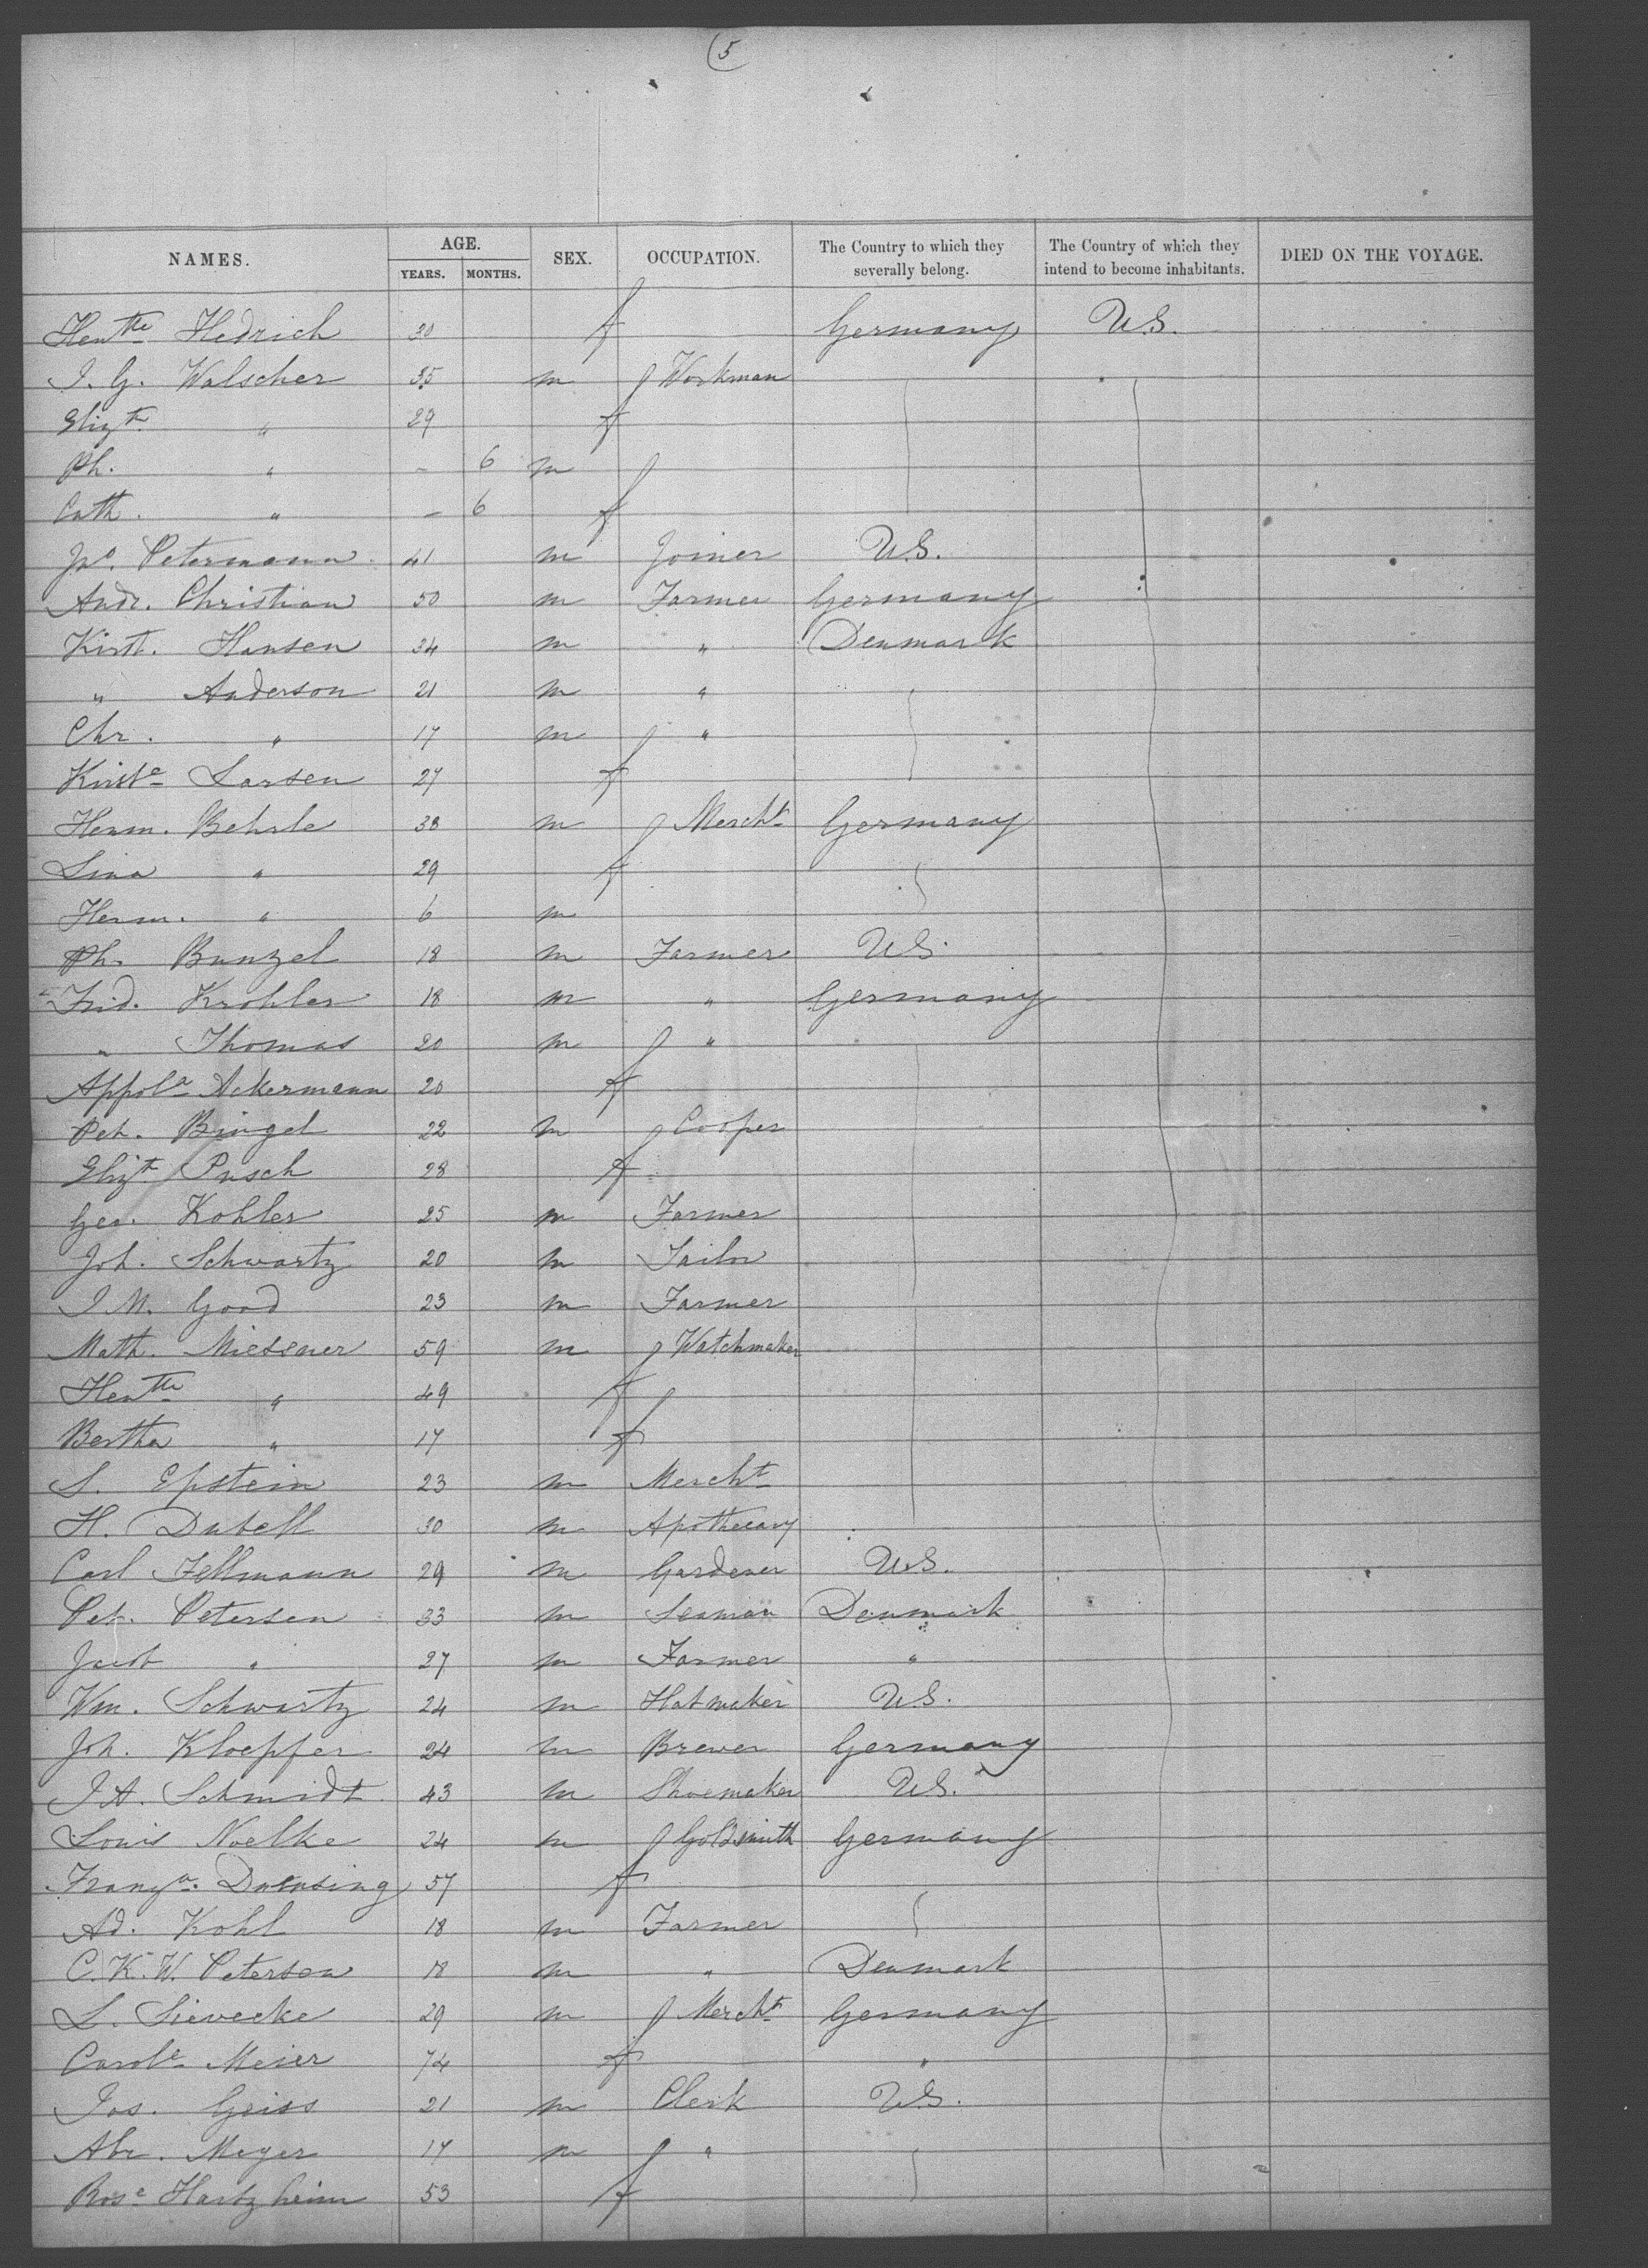 (5
NAMES. AGE. YEARS. MONTHS. SEX. OCCUPATION. The Country to which they severally belong. The Country of which they intend to become inhabitants. DIED ON THE VOYAGE.
Hentte Hedrich 30 f Germany U.S.
J. G. Walscher 35 m Workman
Elizth " 29 f
Ph. " - 6 m
Cath. " - 6 f
Jno. Petermann 41 m Joiner U.S.
Andr. Christian 50 m Farmer Germany
Kirst. Hansen 34 m " Denmark
" Anderson 21 m "
Chr. " 17 m "
Kirste Larsen 27 f
Herm. Behrle 38 m Mercht Germany
Lina " 29 f
Herm. " 6 m
Ph. Bunzel 18 m Farmer U.S.
Frid. Krohler 18 m " Germany
" Thomas 20 m "
Appola Ackermann 20 f
Pet. Bingel 22 m Cooper
Elizt Pusch 28 f
Geo. Kohler 25 m Farmer
Joh. Schwartz 20 m Tailor
J M. Good 23 m Farmer
Math. Miessner 59 m Watchmaker
Hentte " 49 f
Bertha " 17 f
S. Epstein 23 m Mercht
H. Dubell 30 m Apothecary
Carl Fellmann 29 m Gardener U.S.
Pet. Petersen 33 m Seaman Denmark
Jacob " 27 m Farmer "
Wm. Schwartz 24 m Hatmaker U.S.
Joh. Kloepfer 24 m Brewer Germany
J A. Schmidt 43 m Shoemaker U.S.
Louis Noelke 24 m Goldsmith Germany
Franza. Duensing 57 f
Ad. Kohl 18 m Farmer
C. K. W. Petersen 18 m " Denmark
L. Sievecke 29 m Mercht Germany
Carole Meier 74 f "
Jos. Geiss 21 m Clerk U.S.
Abr. Meyer 17 m "
Rose Hartzheim 53 f